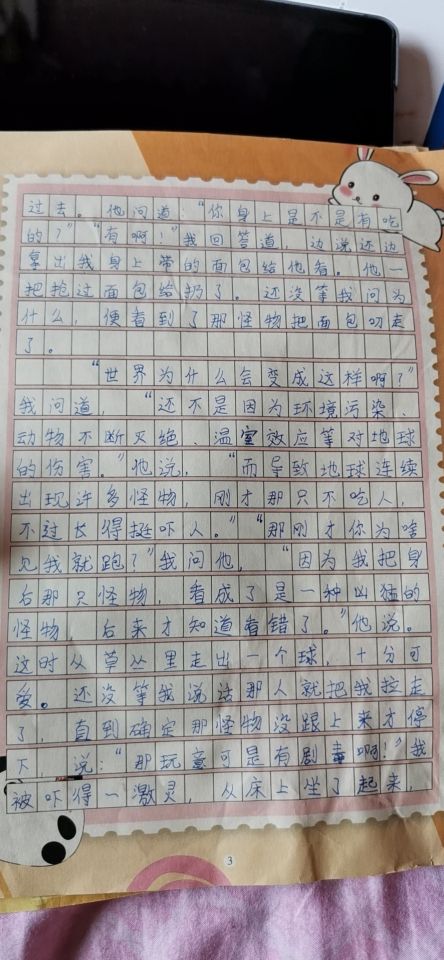 过去。他问道：“你身上是不是有吃
的？”“有啊！”我回答道，边说还边
拿出我身上带的面包给他看。他一
把抢过面包给扔了。还没等我问为
什么，便看到了那怪物把面包叼走
了。
“世界为什么会变成这样啊？”
我问道，“还不是因为环境污染、
动物不断灭绝、温室效应等对地球
的伤害。”他说，“而导致地球连续
出现许多怪物，刚才那只不吃人，
不过长得挺吓人。”“那刚才你为啥
见我就跑？”我问他，“因为我把身
后那只怪物，看成了是一种凶猛的
怪物，后来才知道看错了。”他说。
这时从草丛里走出一个球，十分可
爱。还没等我说话那人就把我拉走
了，直到确定那怪物没跟上来才停
下，说：“那玩意可是有剧毒啊！”我
被吓得一激灵，从床上坐了起来，
3